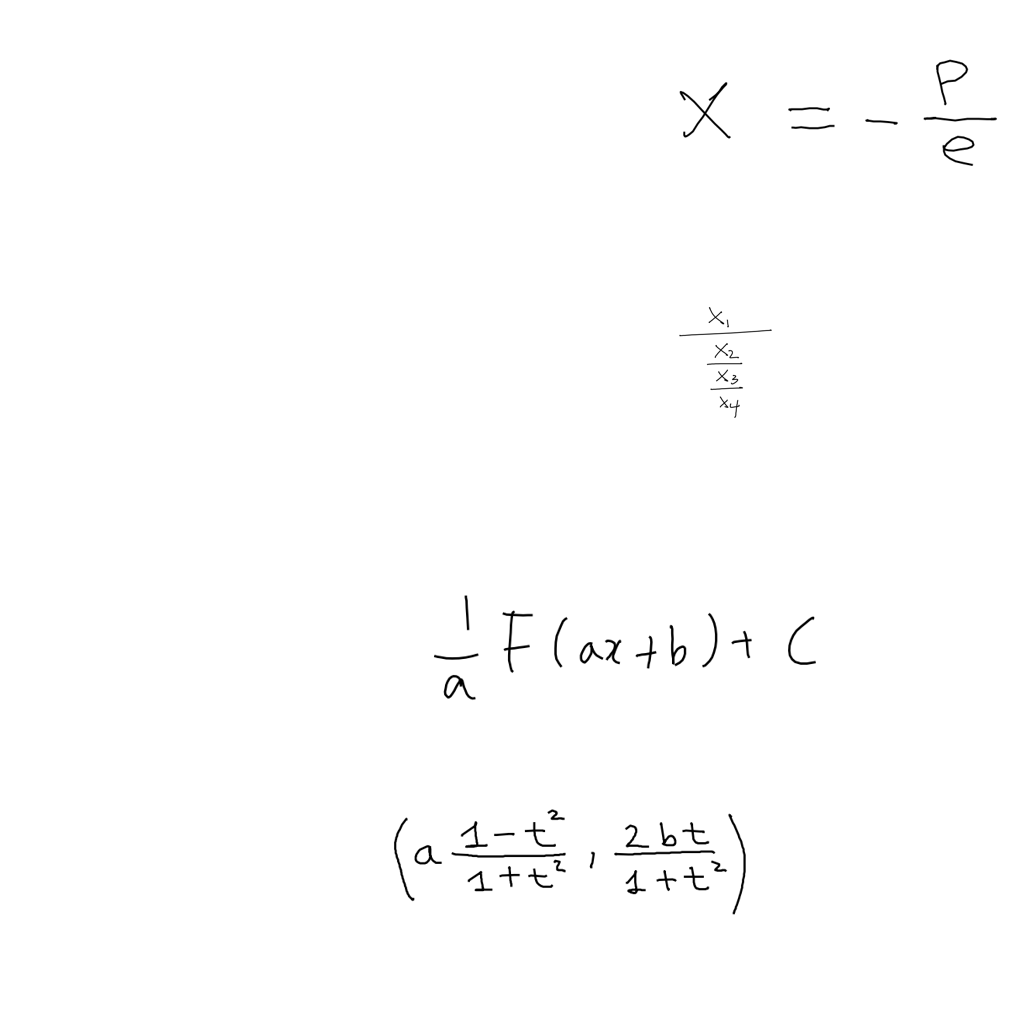 $X = -\frac{P}{e}$
$\frac{x_1}{\frac{x_2}{\frac{x_3}{x_4}}}$
$\frac{1}{a} F(ax+b) + C$
$\left(a \frac{1-t^2}{1+t^2}, \frac{2bt}{1+t^2}\right)$